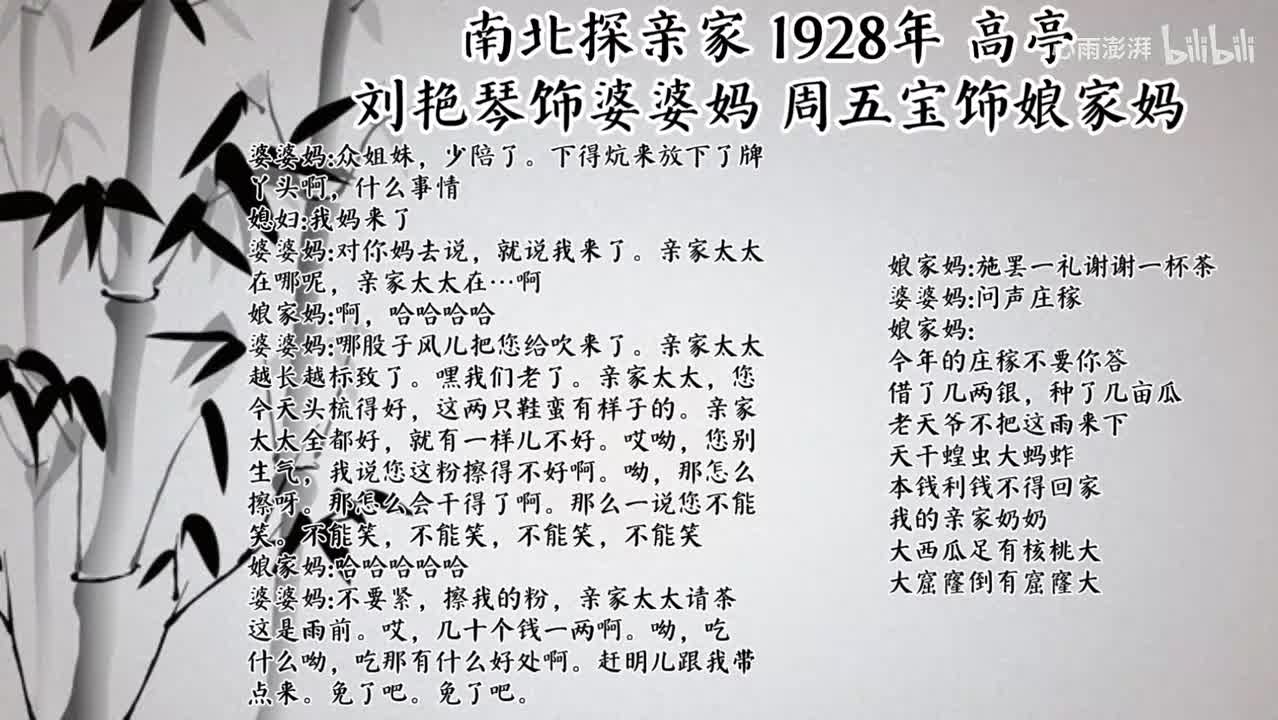 南北探亲家 1928年 高亭
雨澎湃 bilibili
刘艳琴饰婆婆妈 周五宝饰娘家妈
婆婆妈:众姐妹，少陪了。下得炕来放下了牌
丫头啊，什么事情
媳妇:我妈来了
婆婆妈:对你妈去说，就说我来了。亲家太太
在哪呢，亲家太太在…啊
娘家妈:啊，哈哈哈哈
婆婆妈:哪股子风儿把您给吹来了。亲家太太
越长越标致了。嘿我们老了。亲家太太，您
今天头梳得好，这两只鞋蛮有样子的。亲家
太太全都好，就有一样儿不好。哎呦，您别
生气，我说您这粉擦得不好啊。呦，那怎么
擦呀。那怎么会干得了啊。那么一说您不能
笑。不能笑，不能笑，不能笑，不能笑
娘家妈:哈哈哈哈哈
婆婆妈:不要紧，擦我的粉，亲家太太请茶
这是雨前。哎，几十个钱一两啊。呦，吃
什么呦，吃那有什么好处啊。赶明儿跟我带
点来。免了吧。免了吧。
娘家妈:施罢一礼谢谢一杯茶
婆婆妈:问声庄稼
娘家妈:
今年的庄稼不要你答
借了几两银，种了几亩瓜
老天爷不把这雨来下
天干蝗虫大蚂蚱
本钱利钱不得回家
我的亲家奶奶
大西瓜足有核桃大
大窟窿倒有窟窿大